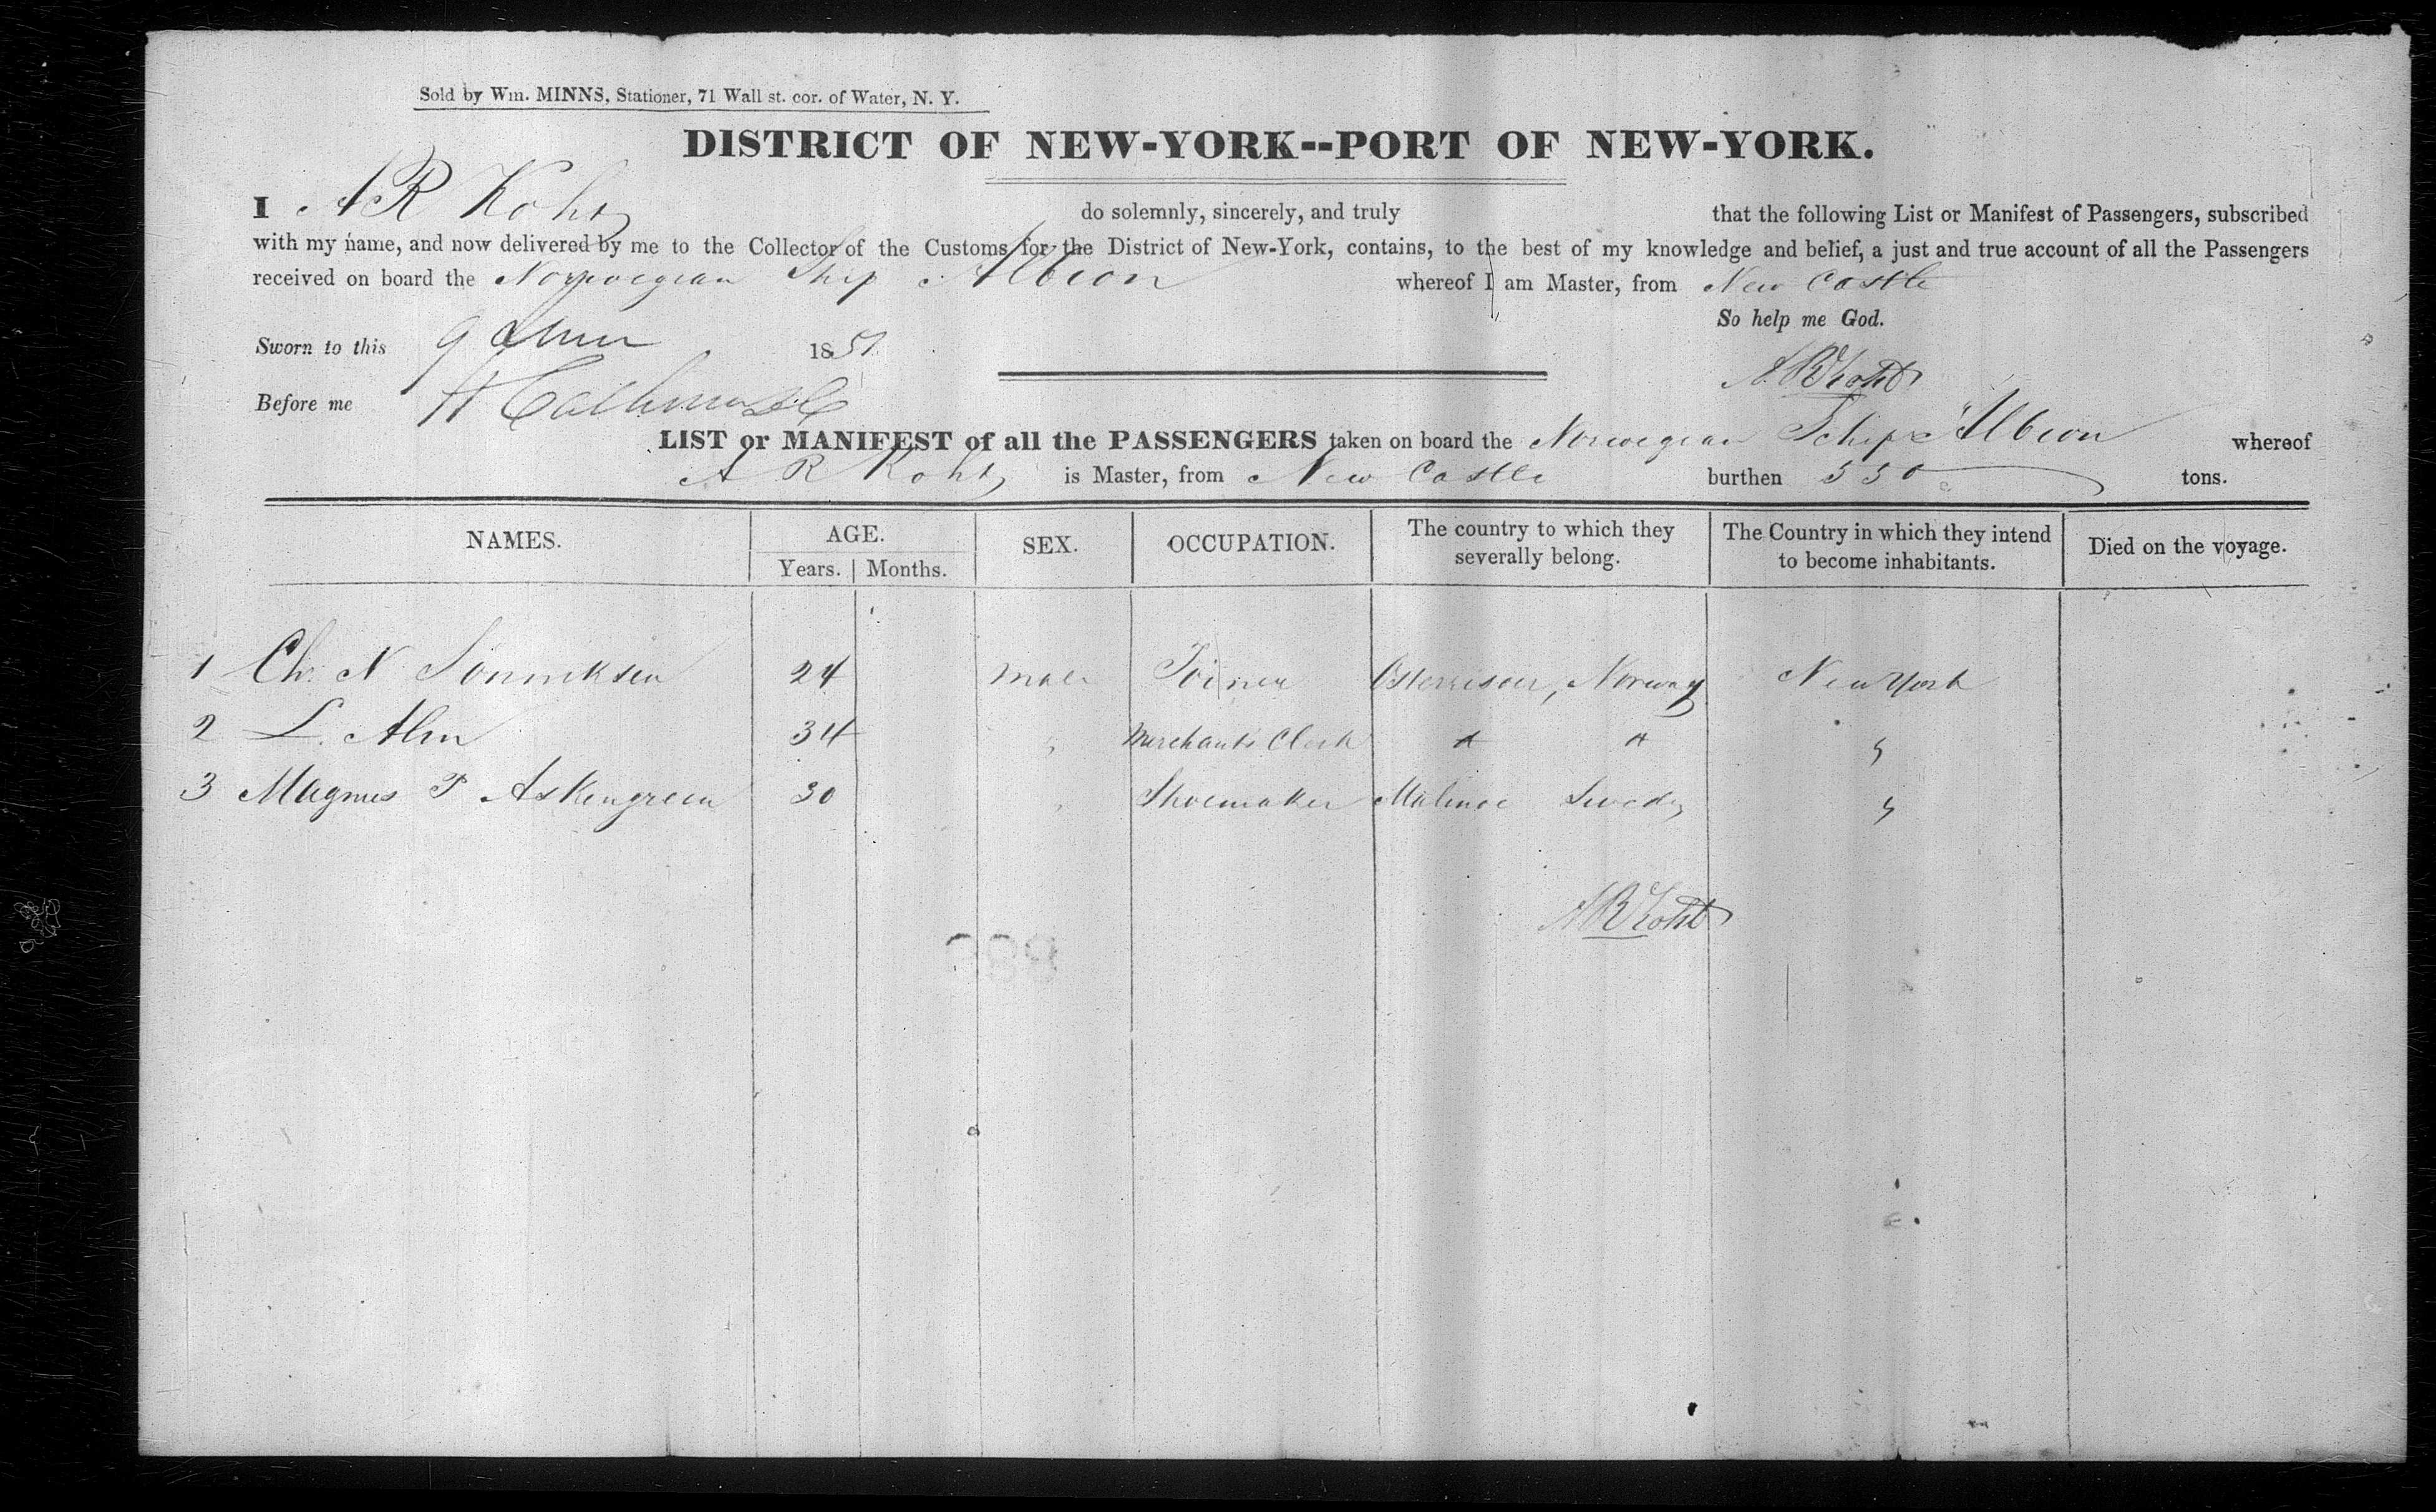 Sold by Wm. MINNS, Stationer, 71 Wall st. cor. of Water, N. Y.
DISTRICT OF NEW-YORK--PORT OF NEW-YORK.
I A R Koht do solemnly, sincerely, and truly that the following List or Manifest of Passengers, subscribed
with my name, and now delivered by me to the Collector of the Customs for the District of New-York, contains, to the best of my knowledge and belief, a just and true account of all the Passengers
received on board the Norwegian Ship Albion whereof I am Master, from New Castle
So help me God.
Sworn to this 9 1851
A R Koht
Before me
LIST or MANIFEST of all the PASSENGERS taken on board the Norwegian Schip Albion whereof
A R Koht is Master, from New Castle burthen 550 tons.
NAMES. AGE. SEX. OCCUPATION. The country to which they severally belong. The Country in which they intend to become inhabitants. Died on the voyage.
Years. Months.
1 Ch. N Sonniksen 24 male Joiner Osterrisoer, Norway New York
2 L. Alm 34 " Merchants Clerk " " "
3 Magnus P Askengreen 30 " Shoemaker Malmoe Swed "
A R Koht